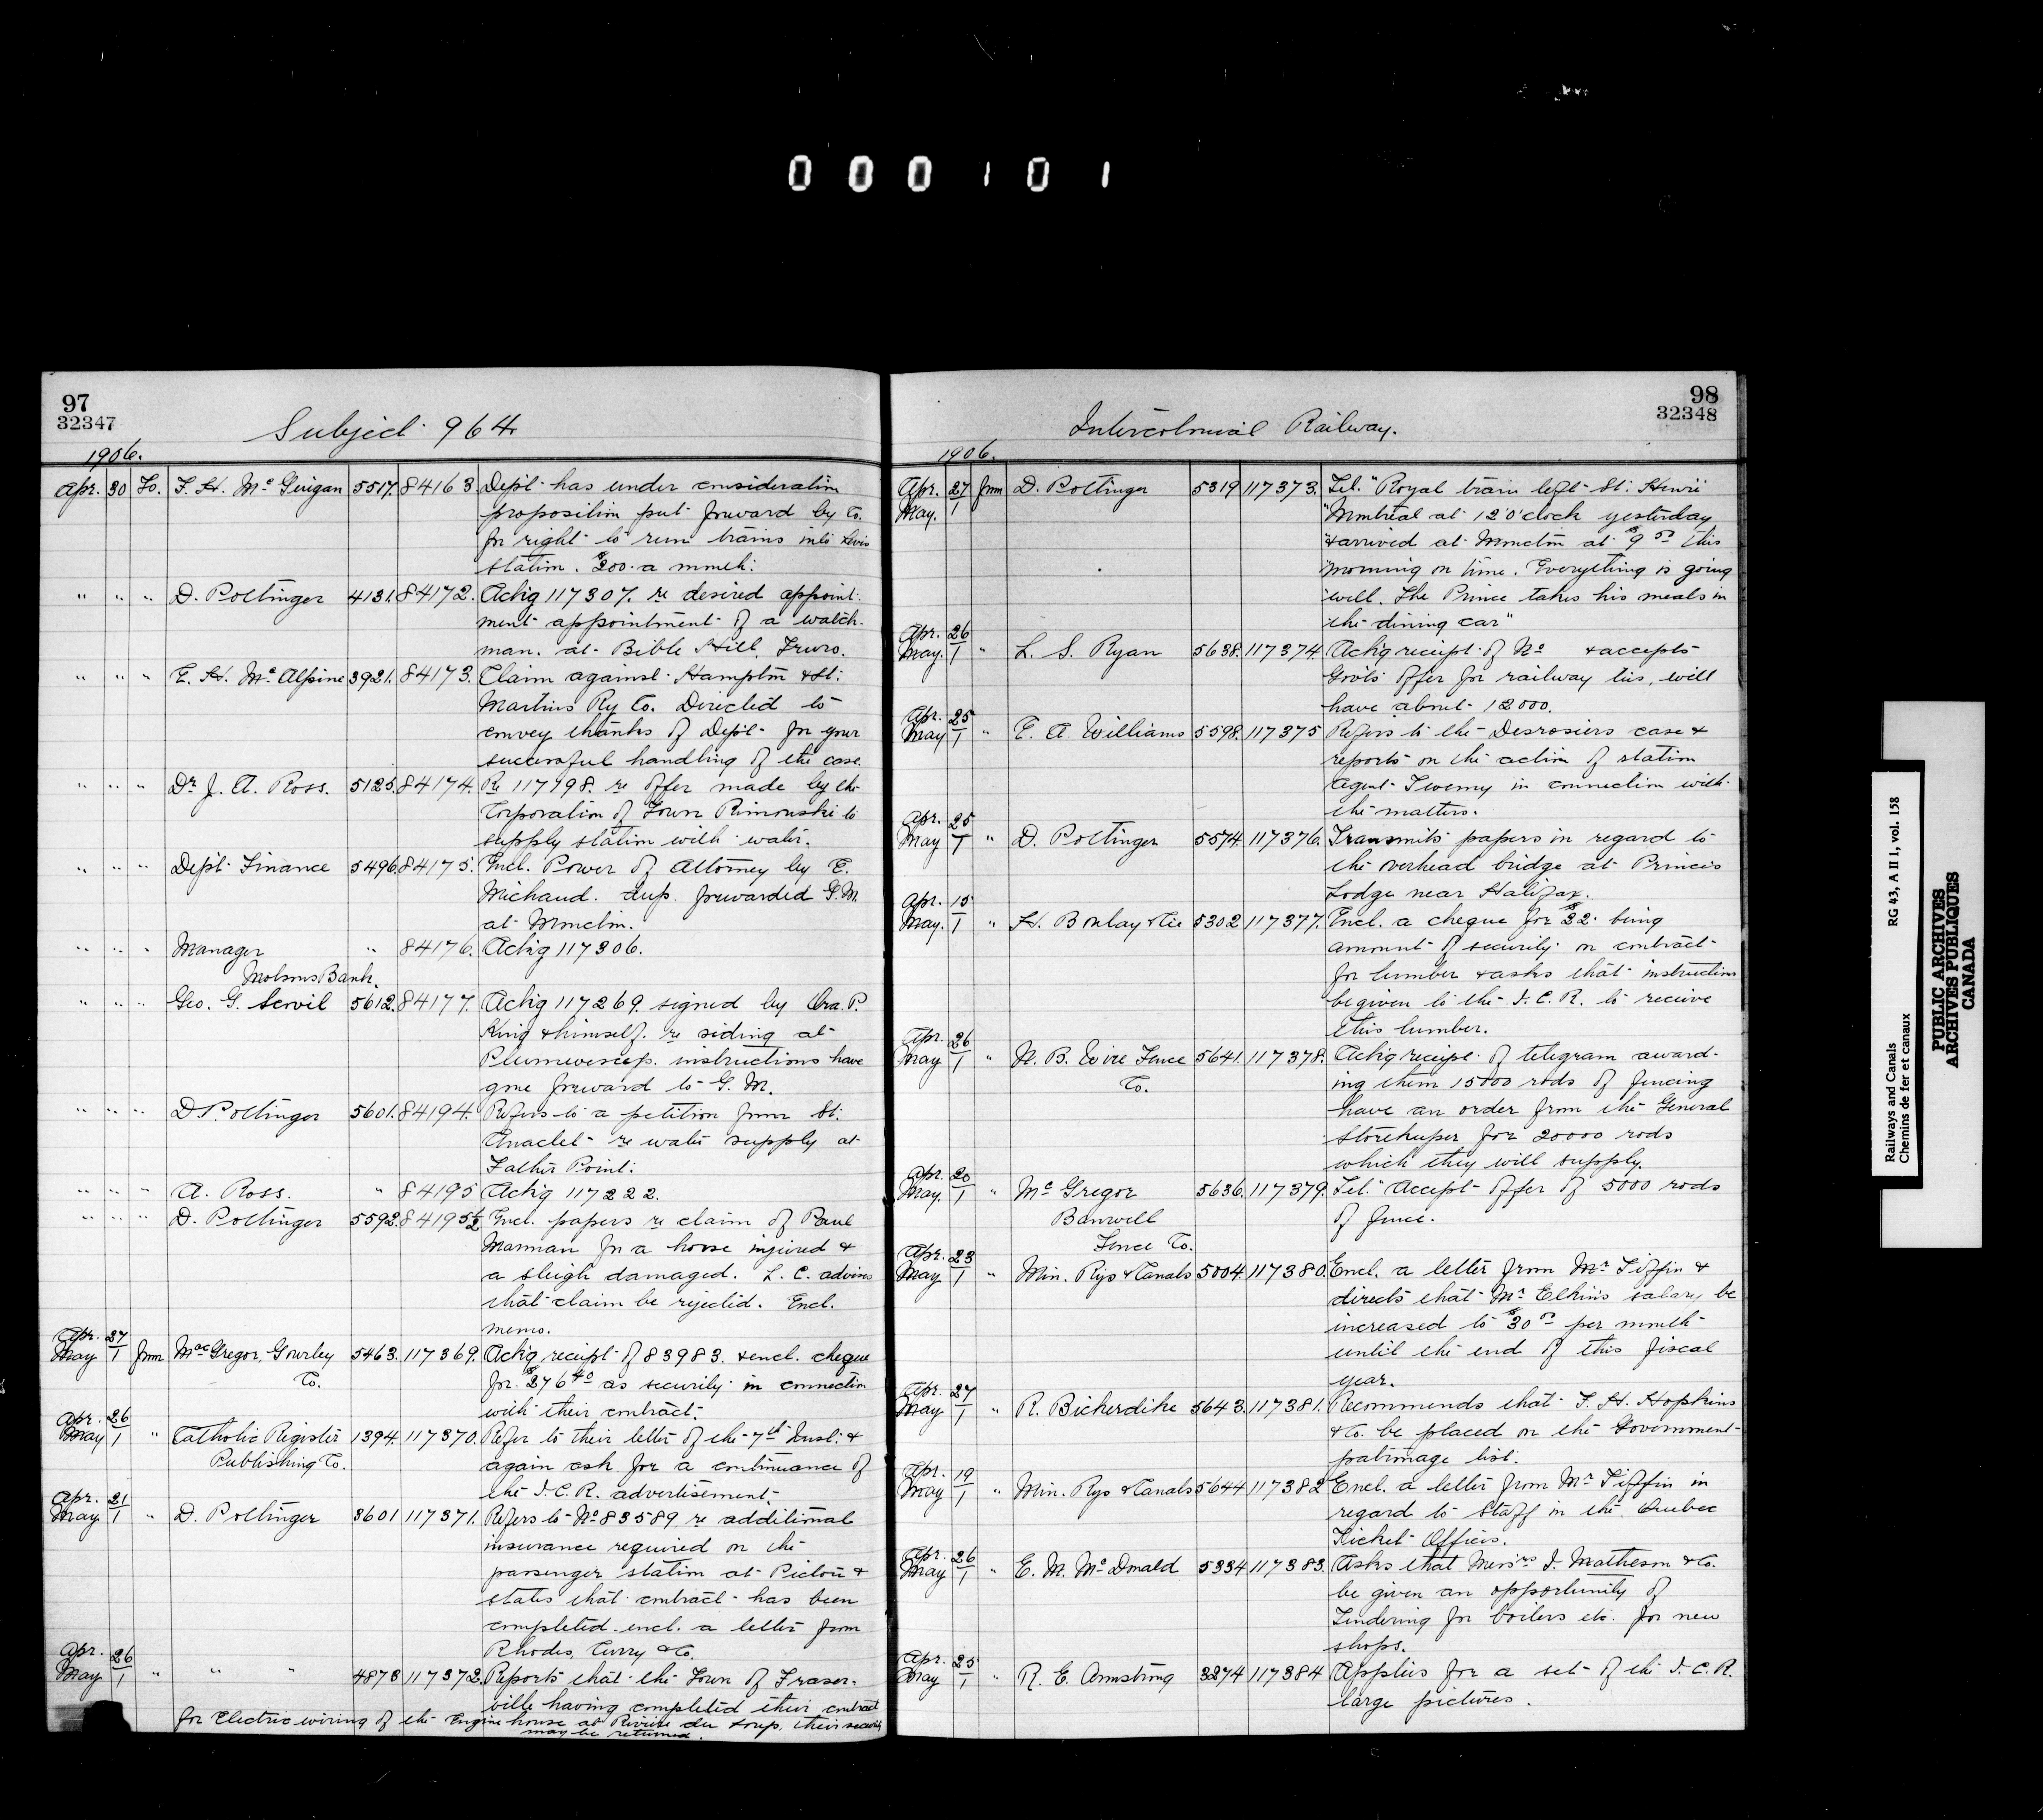 000101
97
32347
Subject 964
1906.
Apr. 30 To. F. H. McGuigan 5517. 84163. Dept. has under consideration
proposition put forward by Co.
for right to run trains into Levis
station. $200. a month.
" " " D. Pottinger 4131. 84172. Ackg 117307. re desired appoint-
ment appointment of a watch-
man. at Bible Hill, Truro.
" " " E. H. McAlpine 3921. 84173. Claim against Hampton & St.
Martins Ry Co. Directed to
convey thanks of Dept. for your
successful handling of the case.
" " " Dr J. A. Ross. 5125. 84174. Re 117198. re offer made by the
Corporation of Town Rimouski to
supply station with water.
" " " Dept. Finance 5496. 84175. Encl. Power of Attorney by E.
Michaud. dup. forwarded G.M.
at Moncton.
" " " Manager " 84176. Ackg 117306.
Molsons Bank.
" " " Geo. G. Scovil 5612. 84177. Ackg 117269. signed by Ora P.
King & himself. re siding at
instructions have
gone forward to G. M.
" " " D. Pottinger 5601. 84194. Refers to a petition from St.
Anaclet re water supply at
Father Point.
" " " A. Ross. " 84195 Ackg 117222.
" " " D. Pottinger 5592. 84195½ Encl. papers re claim of Paul
for a horse injured &
a sleigh damaged. L. C. advises
that claim be rejected. Encl.
memo.
Apr. 27
May 1 from MacGregor, Gourley 5463. 117369. Ackg receipt of 83983. & encl. cheque
Co. for $276.40 as security in connection
with their contract.
Apr. 26
May 1 " Catholic Register 1394. 117370. Refer to their letter of the 7th Inst. &
Publishing Co. again ask for a continuance of
the I. C. R. advertisement.
Apr. 21
May 1 " D. Pottinger 3601 117371. Refers to No 83589 re additional
insurance required on the
passenger station at Pictou &
states that contract has been
completed. encl. a letter from
Rhodes, Curry & Co.
Apr. 26
May 1 " " " 4873 117372. Reports that the Town of Fraser-
ville having completed their contract
for Electric wiring of the Engine house at Rivière du Loup, their security
may be returned.
98
32348
Intercolonial Railway.
1906.
Apr. 27 from D. Pottinger 5319 117373. Tel. "Royal train left St. Henri
May. 1 "Montreal at 12 O'clock yesterday,
"& arrived at Moncton at 9 this
"morning on time. Everything is going
"well. The Prince takes his meals in
"the dining car"
Apr. 26
May. 1 " L. S. Ryan 5638. 117374. Ackg receipt of No & accepts
Govts offer for railway ties, will
have about 12000.
Apr. 25
May 1 " E. A. Williams 5598. 117375 Refers to the Desrosiers case &
reports on the action of station
Agent in connection with
the matters.
Apr. 25
May 1 " D. Pottinger 5574. 117376. Transmits papers in regard to
the overhead bridge at Princes
Lodge near Halifax.
Apr. 15
May. 1 " H. Boulay & Cie 5302 117377. Encl. a cheque for $32. being
amount of security on contract
for lumber & asks that instructions
be given to the I. C. R. to receive
this lumber.
Apr. 26
May 1 " N. B. Wire Fence 5641. 117378. Ackg receipt of telegram award-
Co. ing them 15000 rods of fencing
have an order from the General
Storekeeper for 20000 rods
which they will supply.
Apr. 20
May. 1 " McGregor 5636. 117379. Tel. "Accept offer of 5000 rods
Banwell of fence.
Fence Co.
Apr. 23
May 1 " Min. Rys & Canals 5004. 117380. Encl. a letter from Mr Tiffin &
directs that Mr Elkins salary be
increased to $30 per month
until the end of this fiscal
year.
Apr. 27
May 1 " R. Bickerdike 5643. 117381. Recommends that F. H. Hopkins
& Co. be placed on the Government
patronage list.
Apr. 19
May 1 " Min. Rys & Canals 5644 117382 Encl. a letter from Mr Tiffin in
regard to Staff in the Quebec
Ticket Offices.
Apr. 26
May 1 " E. M. McDonald 5334 117383. Asks that Messrs I. Matheson & Co.
be given an opportunity of
Tendering for boilers etc. for new
shops.
Apr. 25
May 1 " R. E. Armstrong 3274 117384 Applies for a set of the I. C. R.
large pictures.
Railways and Canals
Chemins de fer et canaux
RG 43, A II 1, vol. 158
PUBLIC ARCHIVES
ARCHIVES PUBLIQUES
CANADA